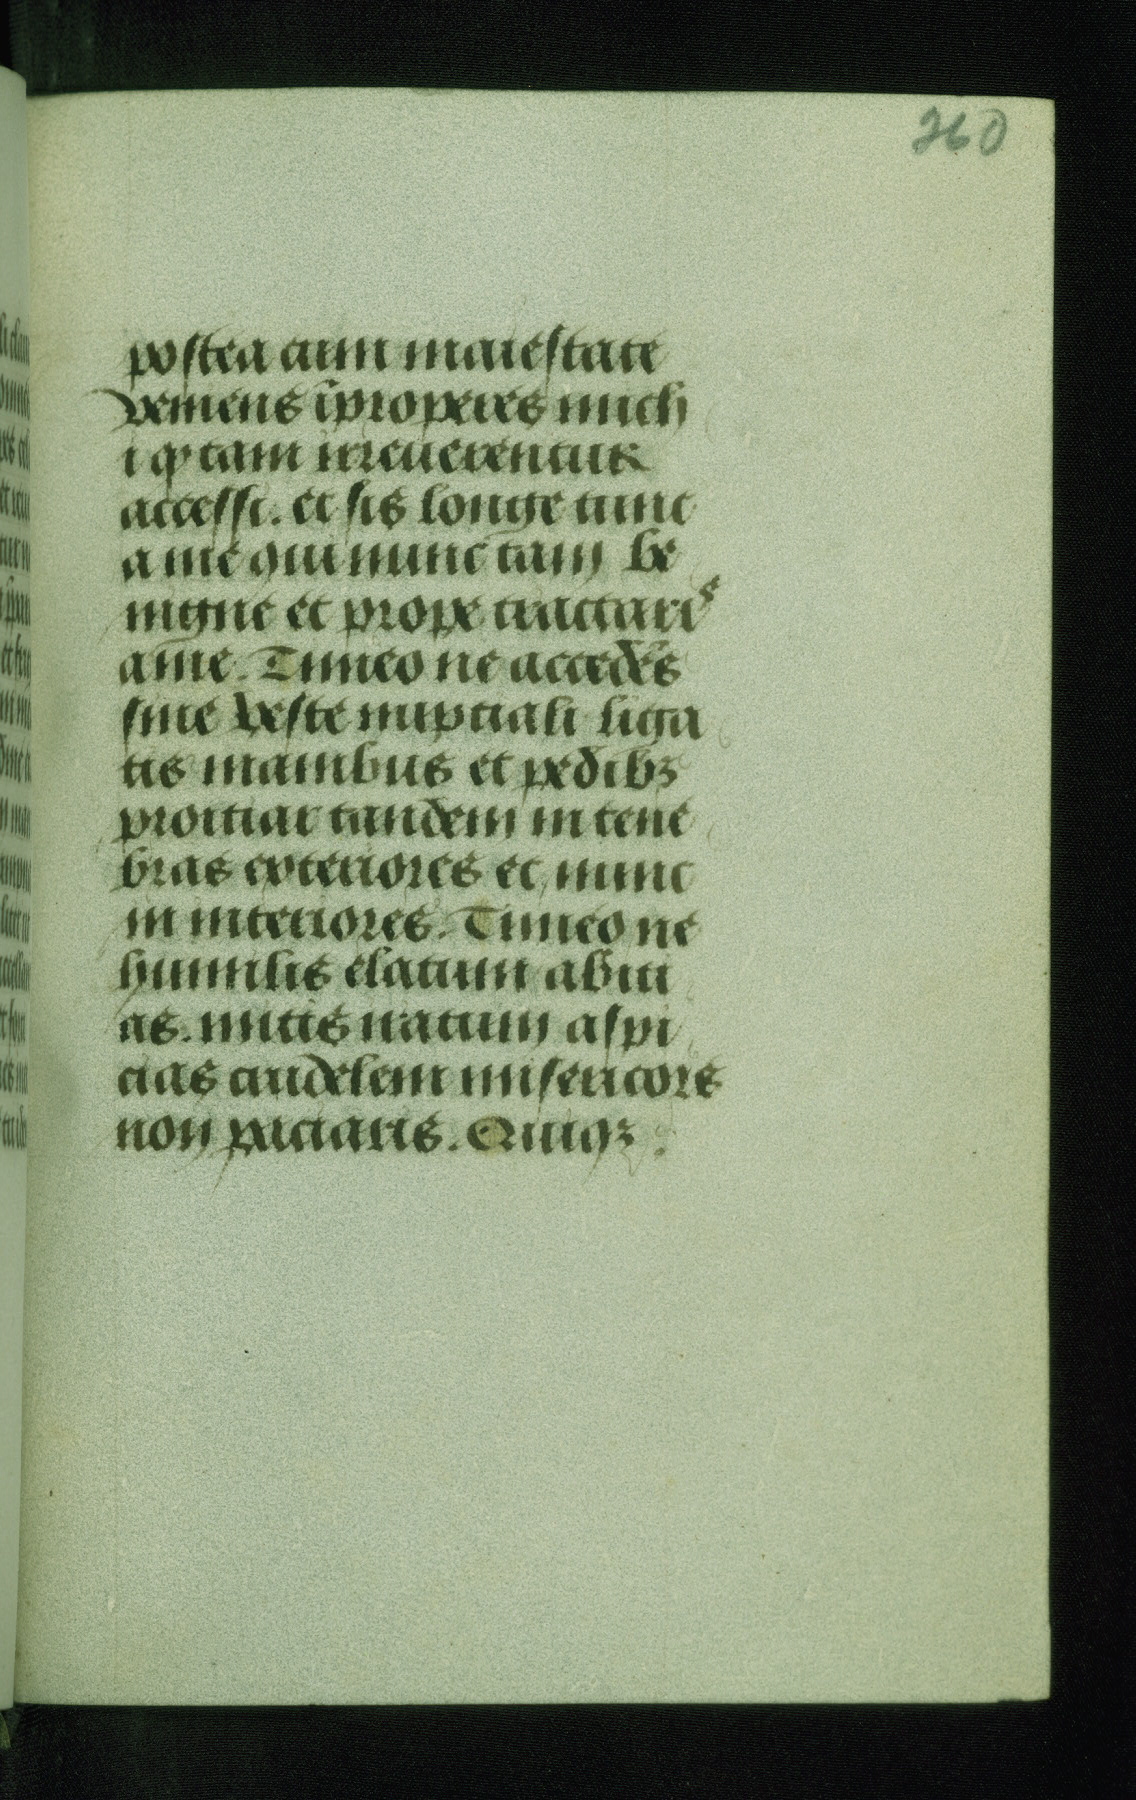 260
postea cum maiestate
veniens īproperes mich
i ꝙ tam irreuerentur
accessi. et sis longe tunc
a me qui nunc tam be
nigne et prope tractaris
a me. Timeo ne accedēs
sine veste nupciali liga
tis manibus et pedibꝫ
proiciar tandem in tene
bras exteriores et nunc
in interiores. Timeo ne
humilis elatum abici
as. mitis iratum aspi
cias crudelem misericors
non paciaris. Quiqꝫ